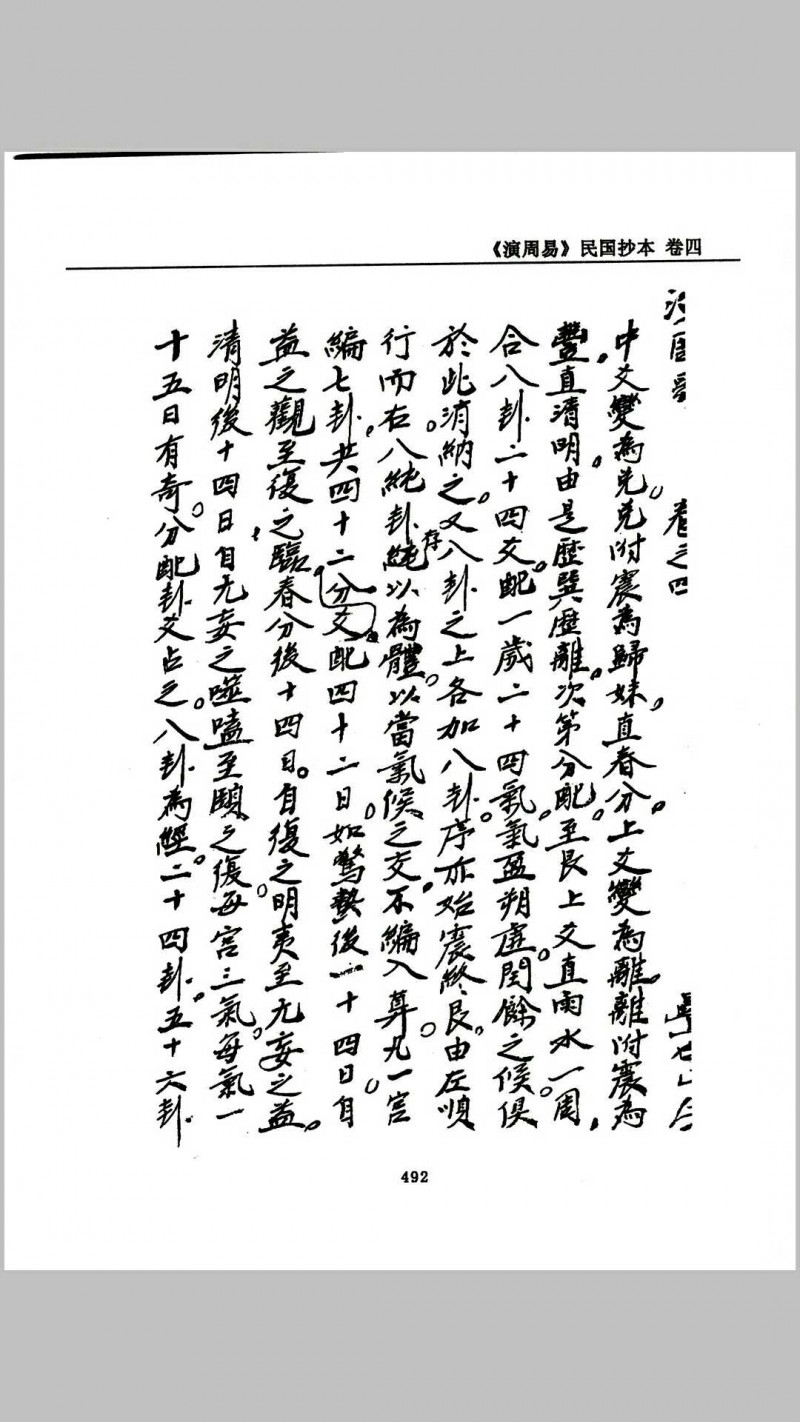 《演周易》民国抄本 卷四
卷之四
中爻變為兌。兌附震為歸妹。直春分。上爻變為離。離附震為
豐。直清明。由是歷巽歷離。次第分配。至艮上爻直雨水一周。
合八卦二十四爻。配一歲二十四氣。氣盈朔虛。閏餘之候。俱
於此消納之。又八卦之上各加八卦。序亦始震終艮。由左順
行而右。八純卦純存以為體。以當氣候之交。不編入算。凡一宮
編七卦。共四十二分爻配四十二日。如驚蟄後一十四日。自
益之觀至復之臨。春分後十四日。自復之明夷至无妄之益。
清明後十四日。自无妄之噬嗑至頤之復。每宮三氣。每氣一
十五日有奇。分配卦爻占之。八卦為經。二十四卦。五十六卦
492